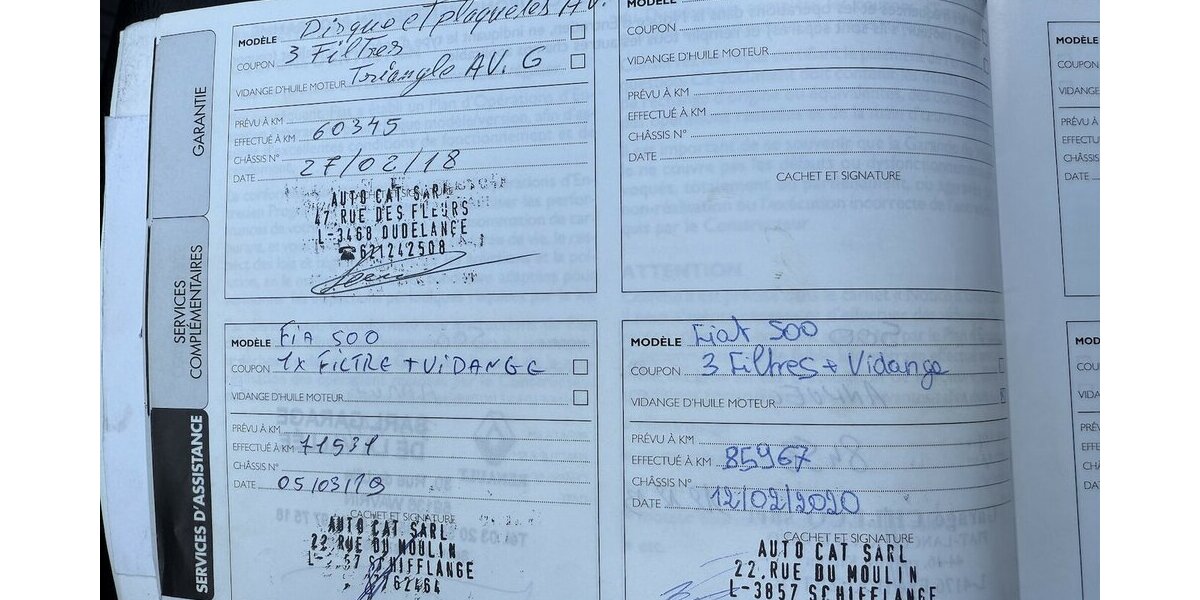 GARANTIE
SERVICES
COMPLÉMENTAIRES
SERVICES D'ASSISTANCE
MODÈLE Disque et plaquetes AV.
COUPON 3 Filtres
VIDANGE D'HUILE MOTEUR Triangle AV. G
PRÉVU À KM
EFFECTUÉ À KM 60345
CHÂSSIS N°
DATE 27/02/18
CACHET ET SIGNATURE
AUTO CAT SARL
47, RUE DES FLEURS
L-3468 DUDELANGE
☎621242508
MODÈLE
COUPON
VIDANGE D'HUILE MOTEUR
PRÉVU À KM
EFFECTUÉ À KM
CHÂSSIS N°
DATE
CACHET ET SIGNATURE
MODÈLE
COUPON
VIDANGE
PRÉVU À
EFFECTU
CHÂSSIS
DATE
MODÈLE FiA 500
COUPON 1x FiLTRE + ViDANGE
VIDANGE D'HUILE MOTEUR
PRÉVU À KM
EFFECTUÉ À KM 71531
CHÂSSIS N°
DATE 05/03/19
CACHET ET SIGNATURE
AUTO CAT SARL
22, RUE DU MOULIN
SCHIFFLANGE
MODÈLE Fiat 500
COUPON 3 Filtres + Vidange
VIDANGE D'HUILE MOTEUR
PRÉVU À KM
EFFECTUÉ À KM 85967
CHÂSSIS N°
DATE 12/02/2020
CACHET ET SIGNATURE
AUTO CAT SARL
22, RUE DU MOULIN
L-3857 SCHIFFLANGE
MOD
COU
VIDA
PRÉV
EFFE
CHÂ
DA